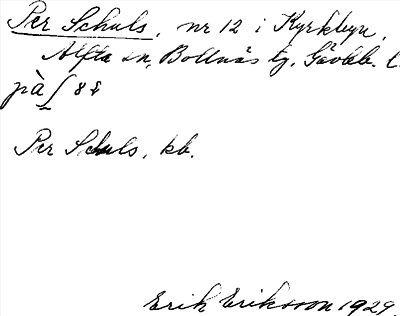 Per Schuls, nr 12 i Kyrkbyn,
Alfta sn, Bollnäs tg, Gävleb. l.
på
Per Schuls, kb.
Erik Eriksson 1929.